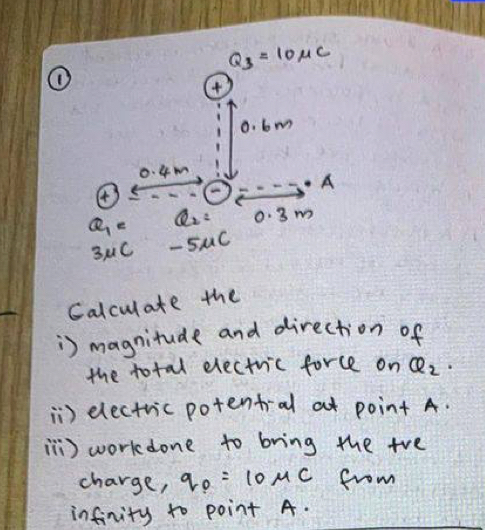 ① Q3 = 10μC
+
0.6m
0.4m
+ - A
Q1 = Q2 = 0.3 m
3μC -5μC
Calculate the
i) magnitude and direction of
the total electric force on Q2.
ii) electric potential at point A.
iii) workdone to bring the +ve
charge, q0 = 10μC from
infinity to point A.